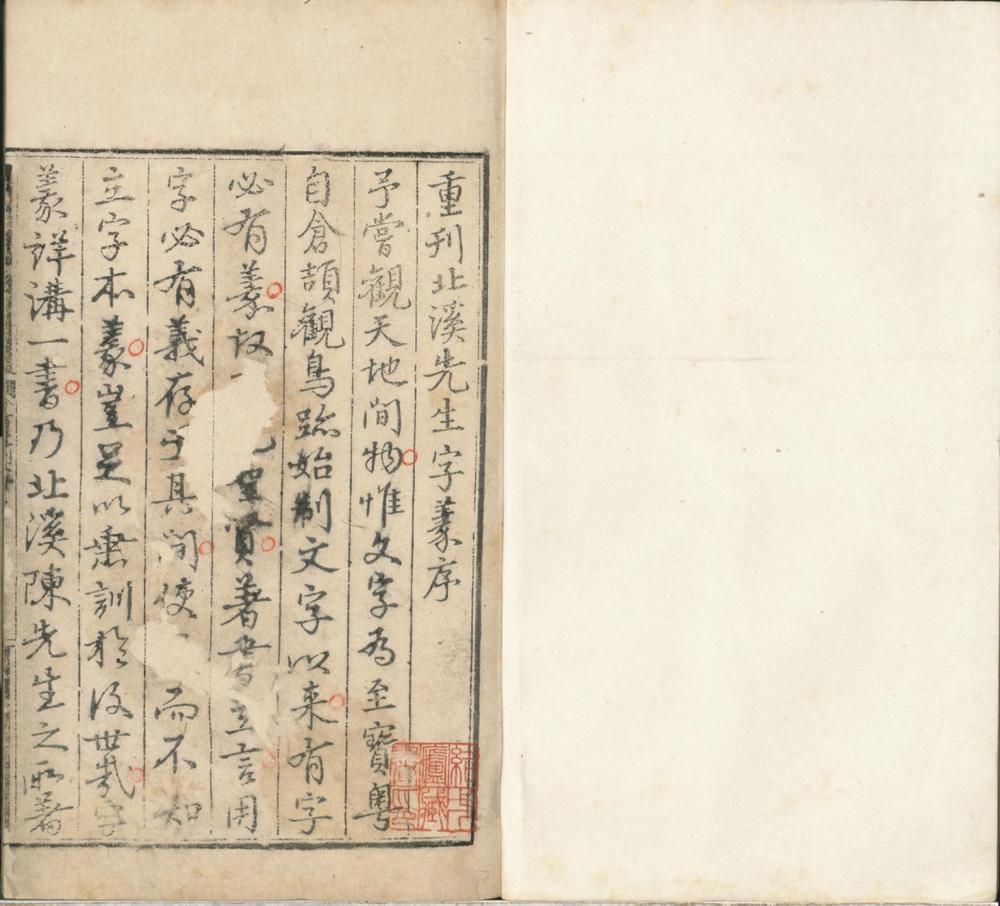 重刊北溪先生字義序
予嘗觀天地間物惟文字為至寶粵
自倉頡觀鳥跡始制文字以来有字
必有義故聖賢著書立言用
字必有義存乎其間使而不知
立字本義豈足以垂訓於後世哉字
義詳講一書乃北溪陳先生之所著